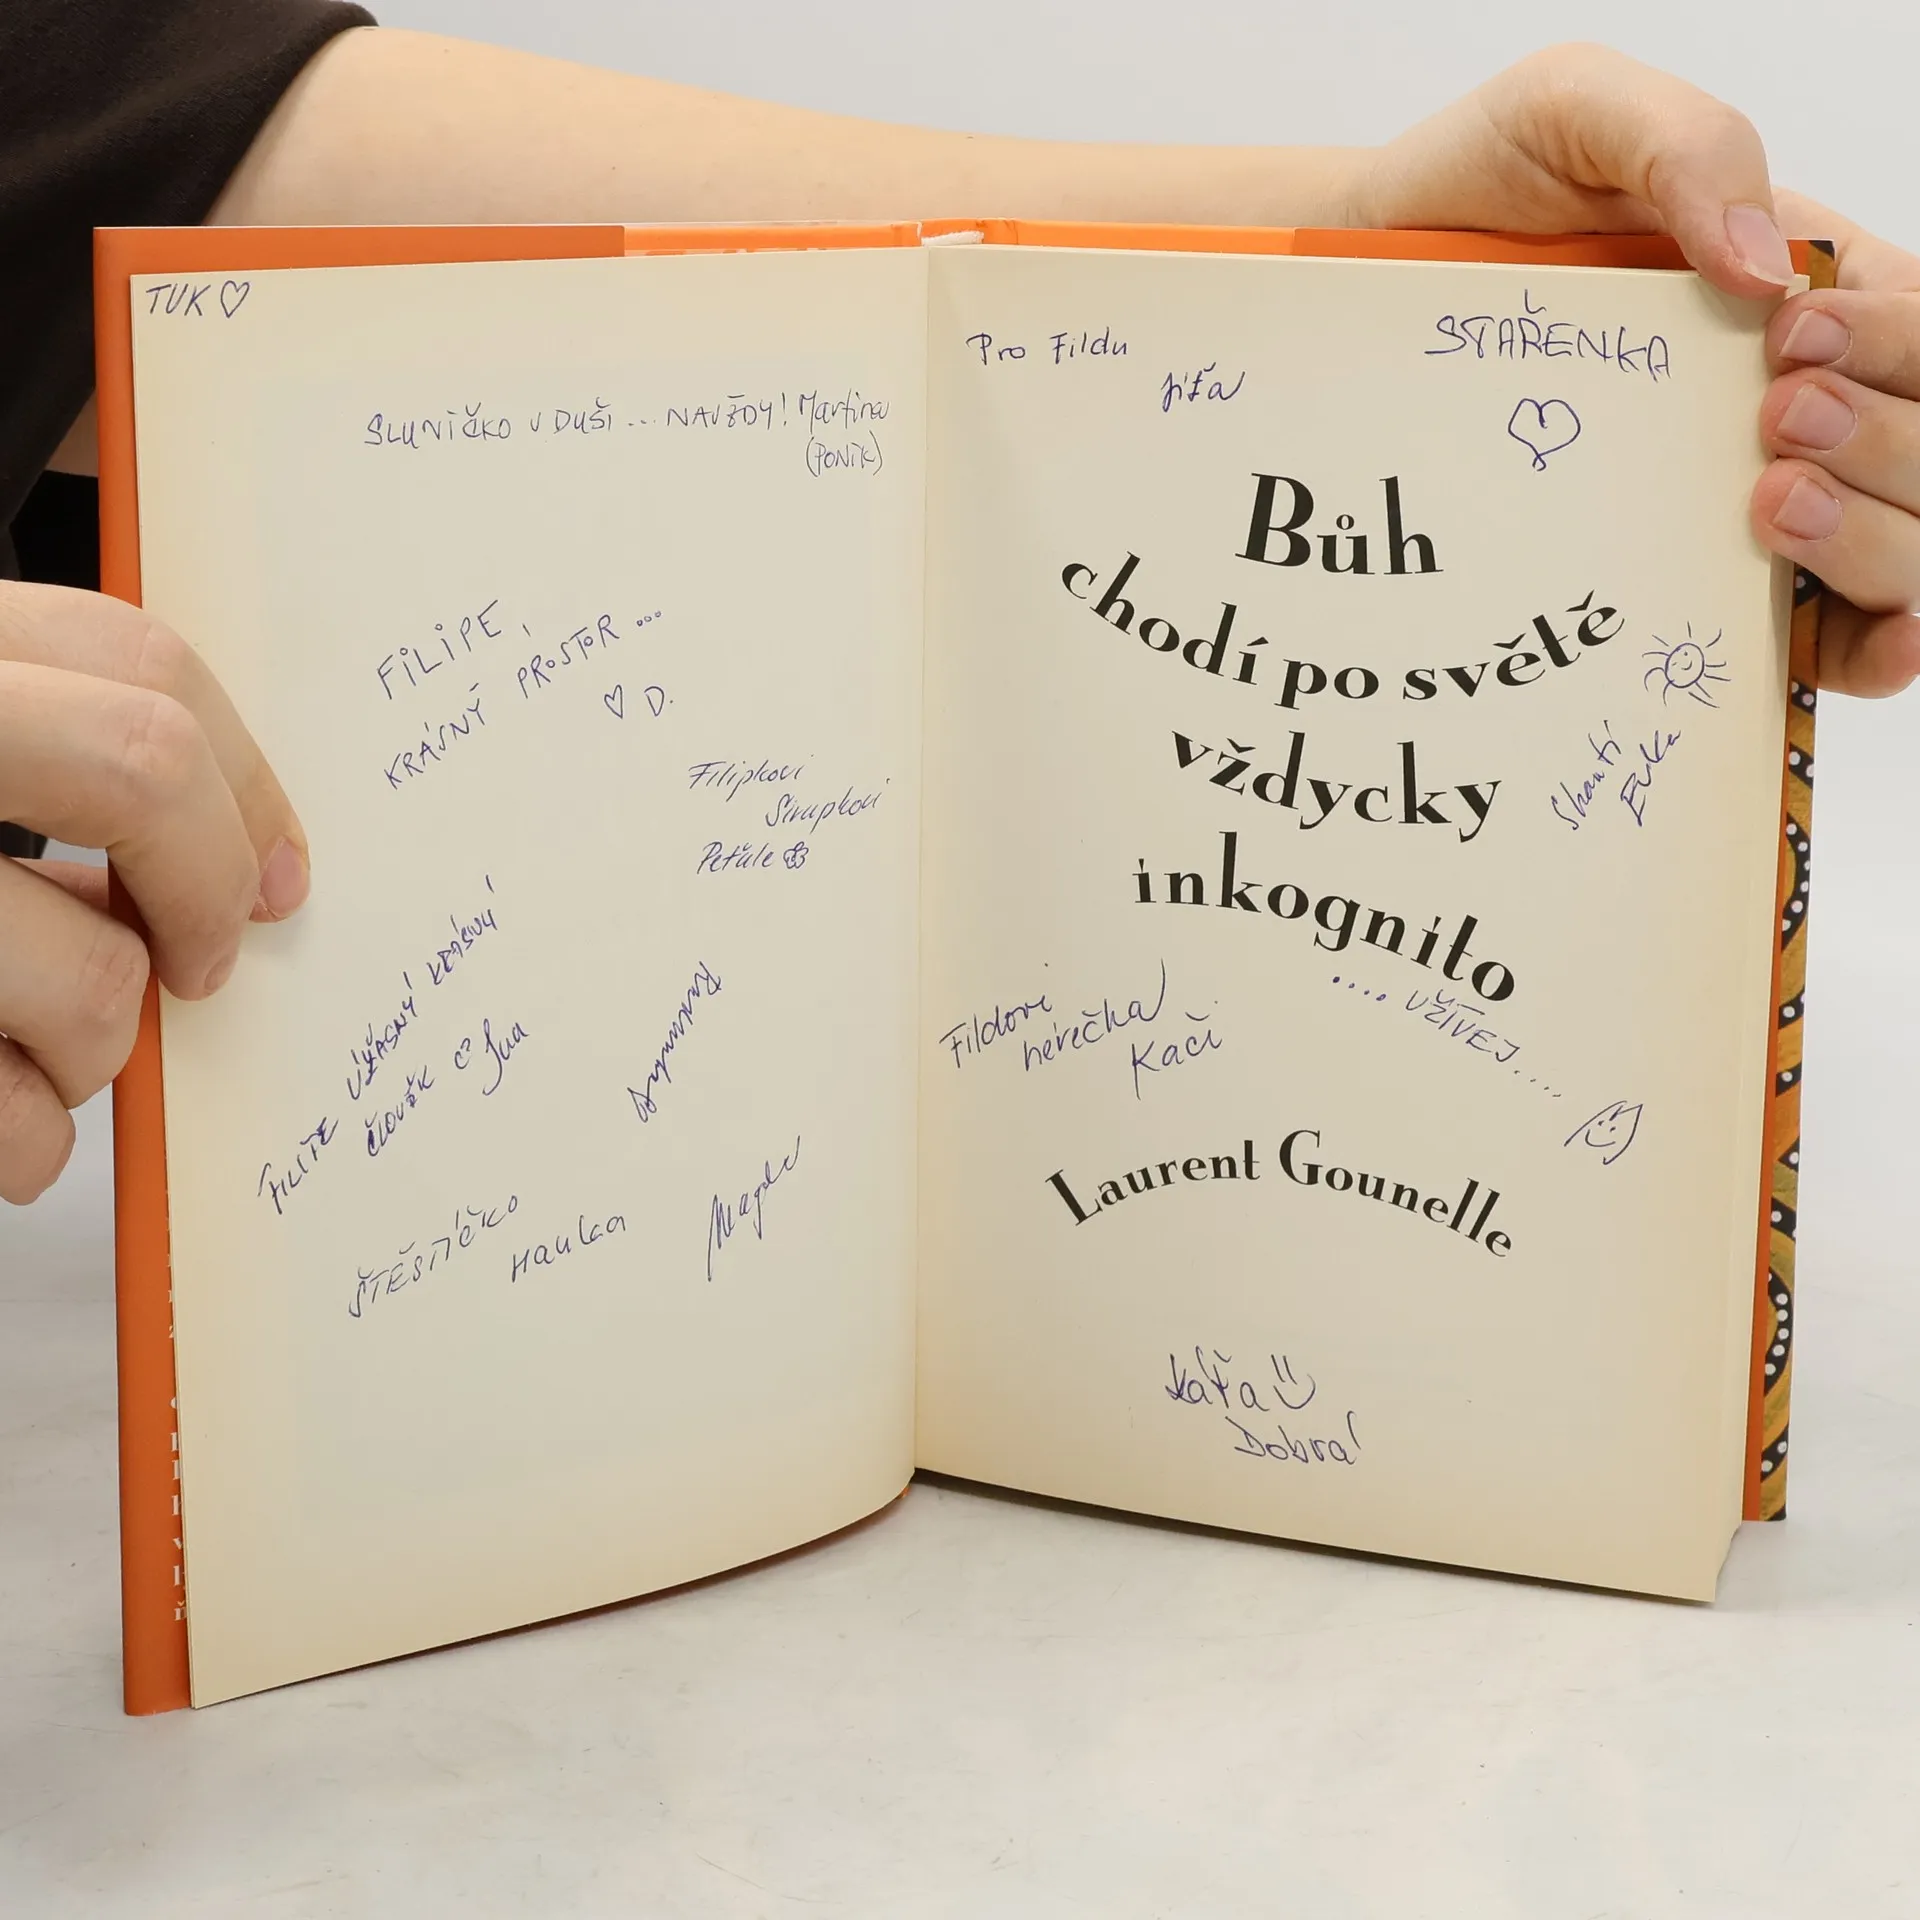 TUK
SLUNÍČKO V DUŠI... NAVŽDY! Martina
(PONÍK)
FILIPE,
KRÁSNÝ PROSTOR...
D.
Filipkovi
Sirupkovi
Peťule
FILIPE ÚŽASNÝ KRÁSNÝ
ČLOVĚK
ŠTĚSTÍČKO
HANKA
Magda
Pro Fildu
Jíťa
STAŘENKA
Bůh
chodí po světě
vždycky
inkognito
Shantí
Evka
.... UŽÍVEJ.....
Fildovi
herečka
Kači
Laurent Gounelle
Káťa
Dobrá
z
h
v
ň